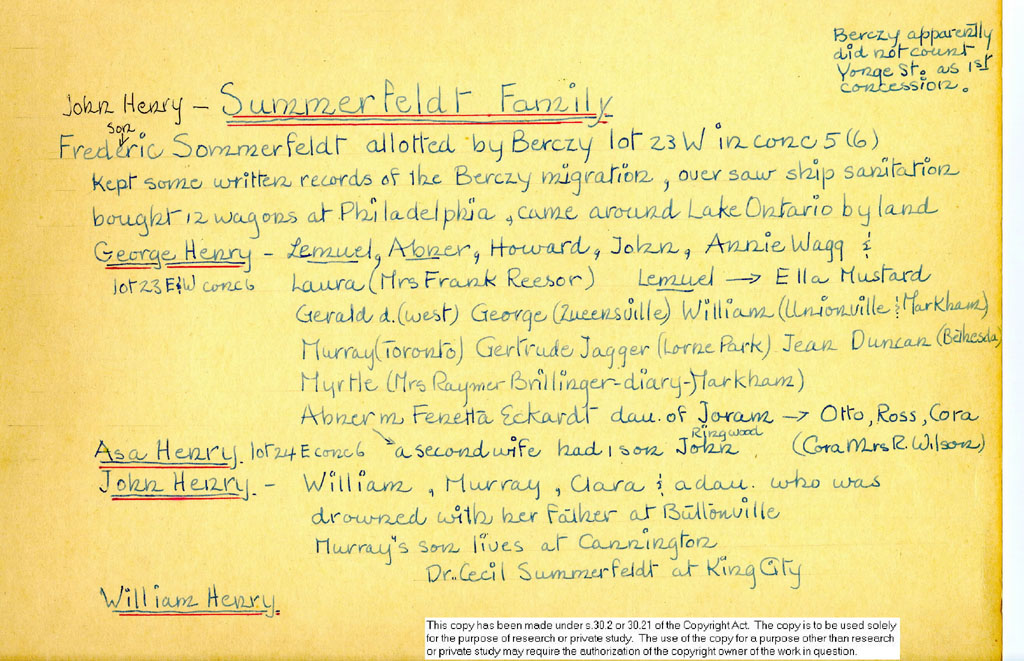 Berczy apparently
did not count
Yonge St. as 1st
concession.
John Henry - Summerfeldt Family
son
Frederic Sommerfeldt allotted by Berczy lot 23 W in conc 5 (6)
Kept some written records of the Berczy migration, over saw ship sanitation
bought 12 wagons at Philadelphia, came around Lake Ontario by land
George Henry - Lemuel, Abner, Howard, John, Annie Wagg &
lot 23 E & W conc 6 Laura (Mrs Frank Reesor) Lemuel → Ella Mustard
Gerald d. (West) George (Queensville) William (Unionville & Markham)
Murray (Toronto) Gertrude Jagger (Lorne Park) Jean Duncan (Bethesda)
Myrtle (Mrs Raymer Brillinger - diary - Markham)
Abner m Fenetta Eckardt dau. of Joram → Otto, Ross, Cora
Ringwood
Asa Henry. lot 24 E conc 6 a second wife had 1 son John (Cora Mrs R. Wilson)
John Henry. - William, Murray, Clara & a dau. who was
drowned with her father at Buttonville
Murray's son lives at Cannington
Dr. Cecil Summerfeldt at King City
William Henry.
This copy has been made under s.30.2 or 30.21 of the Copyright Act. The copy is to be used solely
for the purpose of research or private study. The use of the copy for a purpose other than research
or private study may require the authorization of the copyright owner of the work in question.